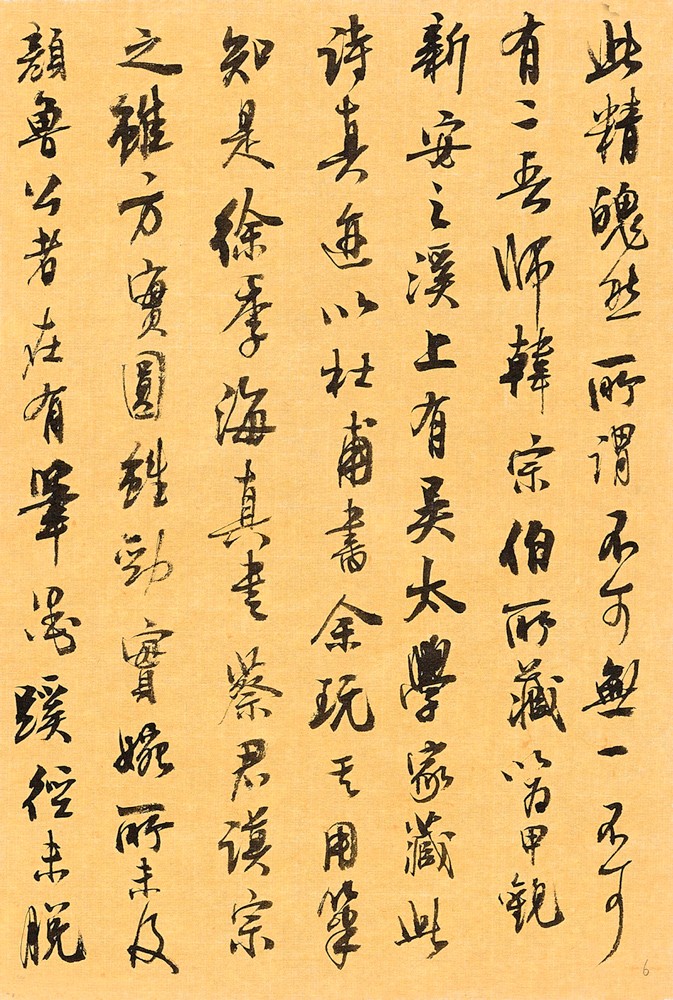 此精魄然所謂不可無一不可
有二吾師韓宗伯所藏以為甲觀
新安之溪上有吳太學家藏此
詩真迹以杜甫書余玩其用筆
知是徐季海真書蔡君謨宗
之雖方實圓雖勁實婉所未及
顏魯公者在有筆墨蹊徑未脫
6